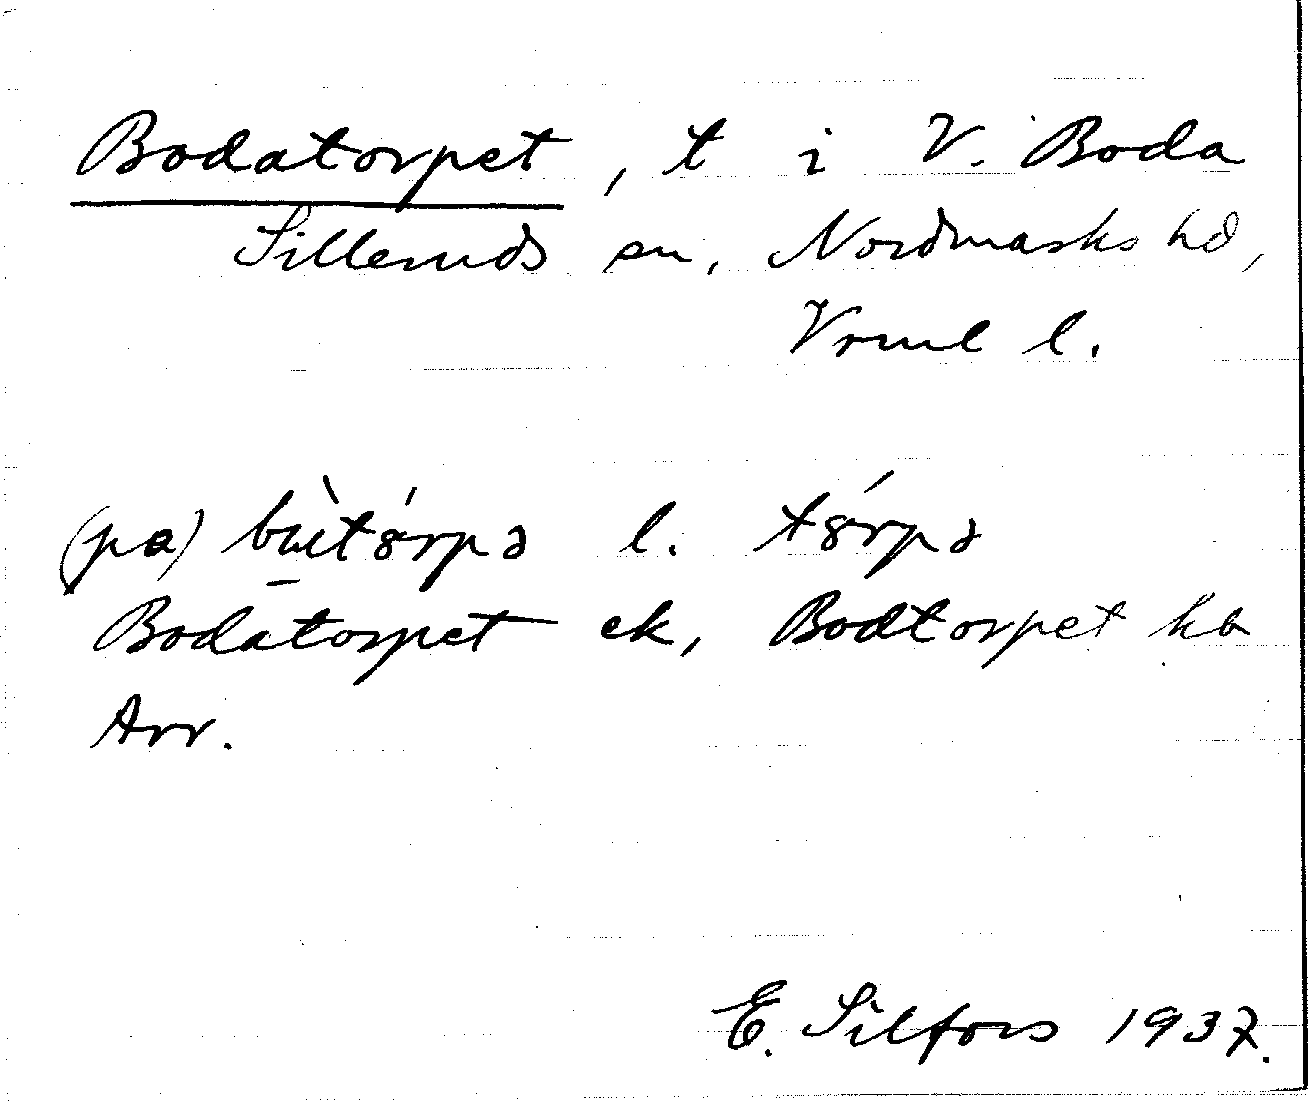 Bodatorpet, t i V. Boda
Silleruds sn, Nordmarks hd,
Vrml l.
(pa) bùtórpə l. tórpə
Bodatorpet ek, Bodtorpet kb
Arr.
E. Silfors 1937.